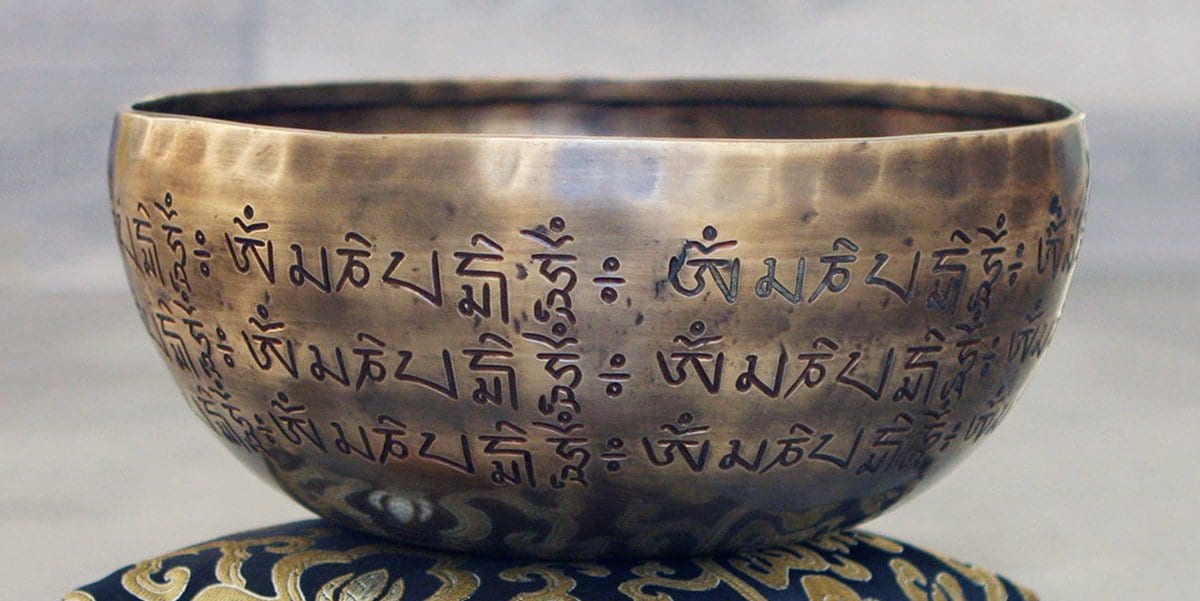 པདྨེཧཱུྃ༔ ཨོཾམཎིཔདྨེཧཱུྃ༔ ཨོཾམཎིཔདྨེཧཱུྃ༔ ཨོཾ
དྨེཧཱུྃ༔ ཨོཾམཎིཔདྨེཧཱུྃ༔ ཨོཾམཎིཔདྨེཧཱུྃ༔ ཨོཾ
ཨོཾམཎིཔདྨེཧཱུྃ༔ ཨོཾམཎིཔདྨེཧཱུྃ ཨོཾ